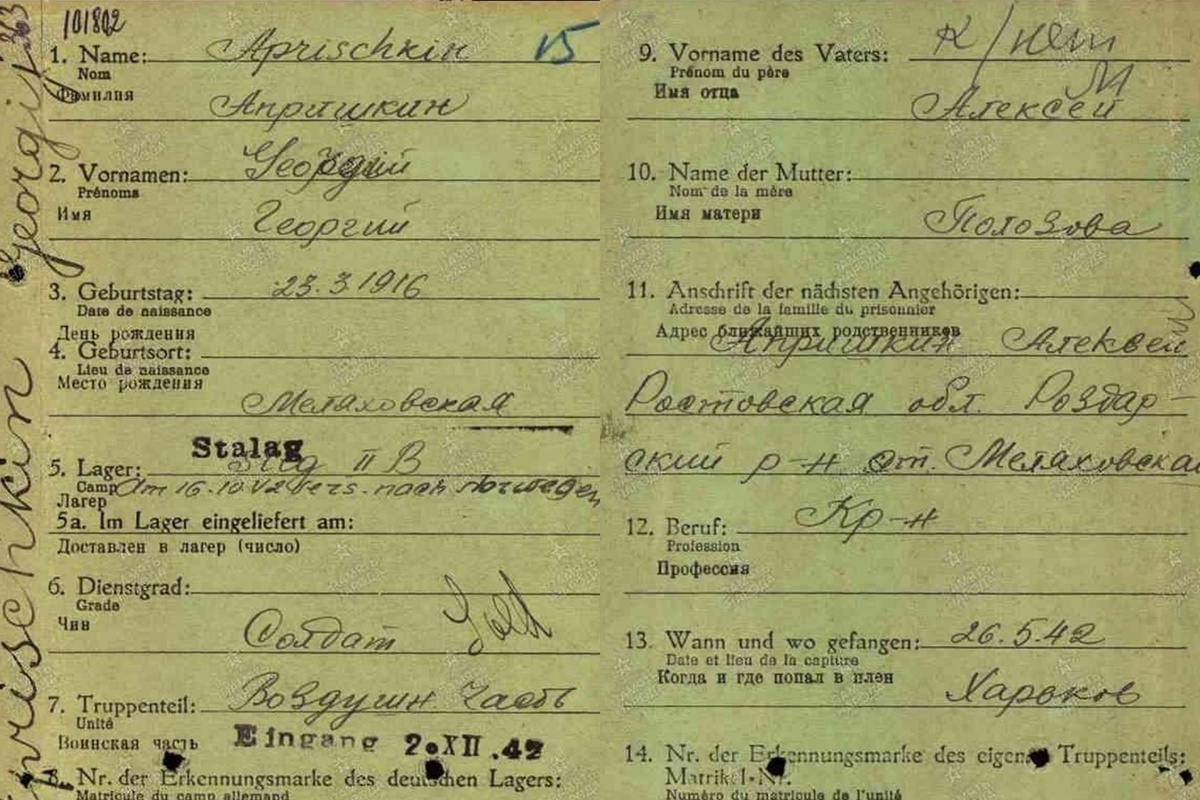 101802
1. Name: Aprischkin 15
Nom
Фамилия Апришкин
2. Vornamen: Георгий
Prénoms
Имя Георгий
3. Geburtstag: 23.3.1916
Date de naissance
День рождения
4. Geburtsort:
Lieu de naissance
Место рождения
Меляховская
Stalag
5. Lager: II B
Camp Am 16.10.42 vers. nach Norwegen
Лагер
5a. Im Lager eingeliefert am:
Доставлен в лагер (число)
6. Dienstgrad:
Grade
Чин Солдат Sold
7. Truppenteil: Воздушн. часть
Unité
Воинская часть Eingang 2.XII.42
8. Nr. der Erkennungsmarke des deutschen Lagers:
Matricule du camp allemand
Aprischkin Georgij
9. Vorname des Vaters:
Prénom du père
Имя отца Алексей
10. Name der Mutter:
Nom de la mère
Имя матери Полозова
11. Anschrift der nächsten Angehörigen:
Adresse de la famille du prisonnier
Адрес ближайших родственников
Апришкин Алексей
Ростовская обл. Роздар-
ский р-н ст. Меляховская
12. Beruf: Кр-н
Profession
Профессия
13. Wann und wo gefangen: 26.5.42
Date et lieu de la capture
Когда и где попал в плен
Харьков
14. Nr. der Erkennungsmarke des eigenen Truppenteils:
Matrikel-Nr.
Numéro du matricule de l'unité